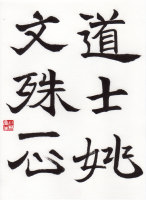 道士姚
文殊心